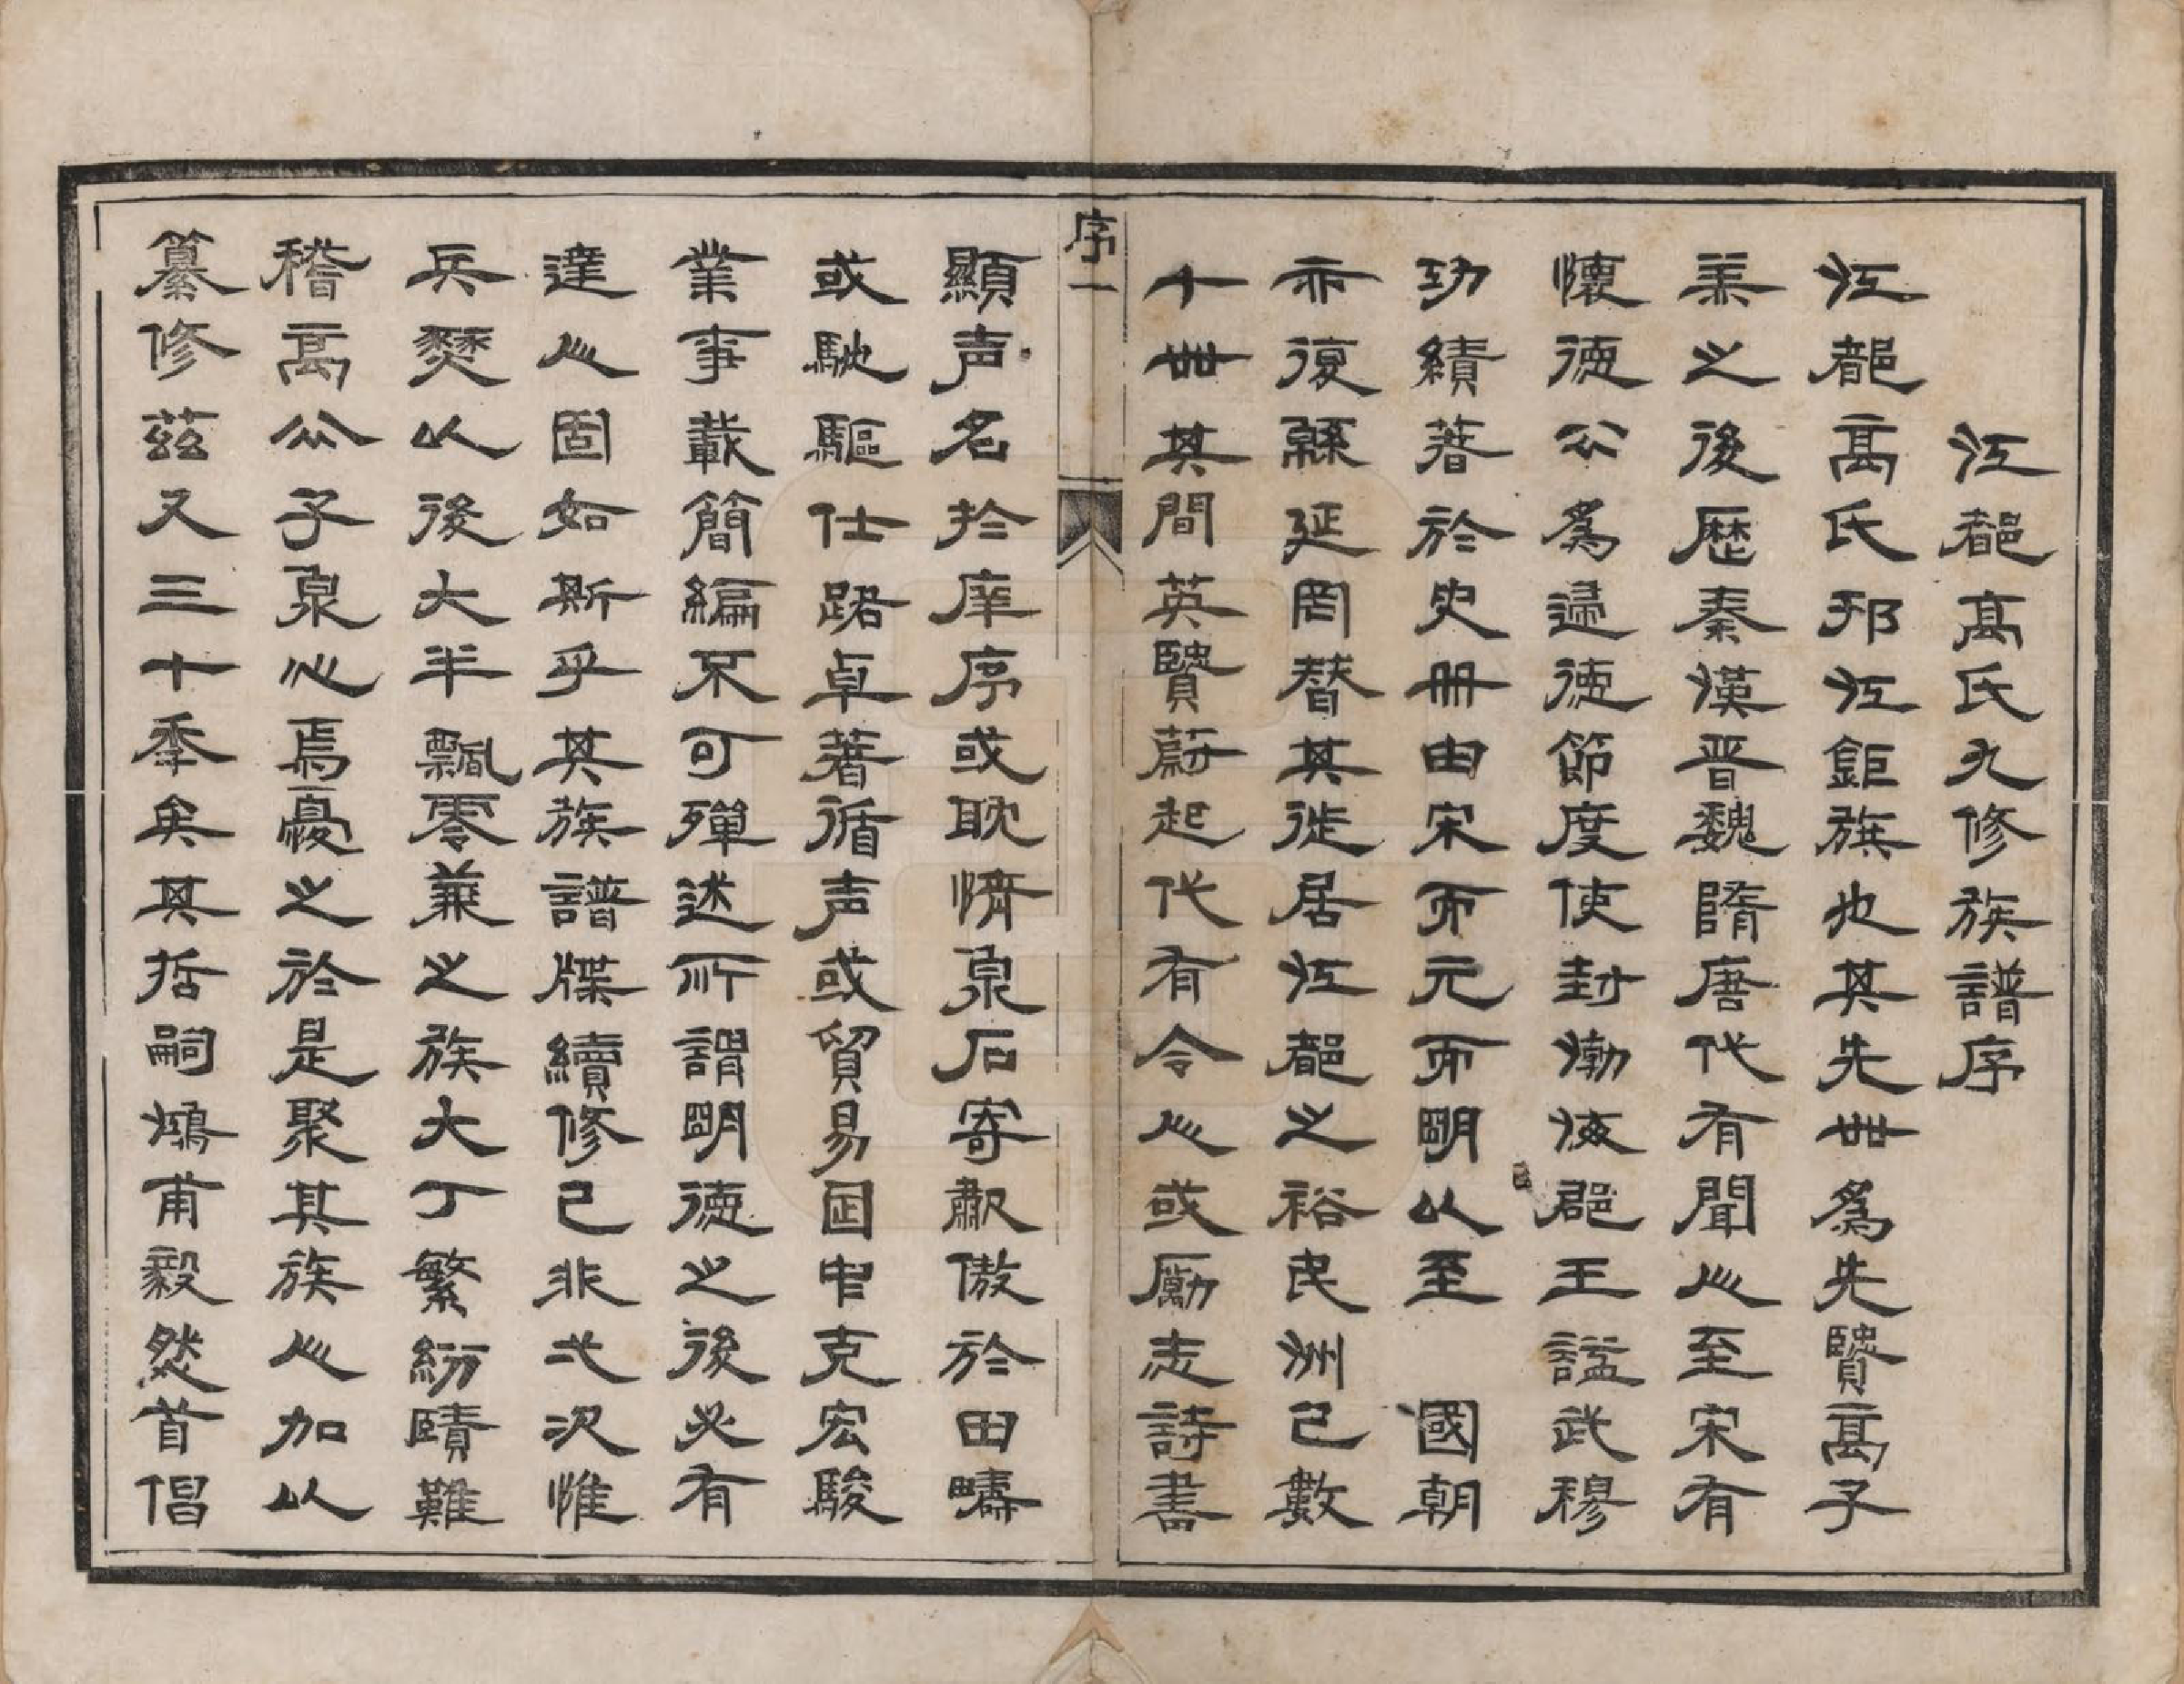 江都高氏九修族譜序
江都高氏邗江鉅族也其先世爲先賢高子
羔之後歷秦漢晋魏隋唐代有聞人至宋有
懷德公爲歸德節度使封渤海郡王謚武穆
功績著於史册由宋而元而明以至 國朝
亦復緜延罔替其徙居江都之裕民洲已數
十世其間英賢蔚起代有令人或勵志詩書
序一
顯声名於庠序或耽情泉石寄歗傲於田疇
或馳驅仕路卓著循声或貿易固中克宏駿
業事載簡編不可殫述所謂明德之後必有
達人固如斯乎其族譜牒續修已非弌次惟
兵燹以後大半飄零兼之族大丁繁紛賾難
稽高公子泉心焉憂之於是聚其族人加以
纂修茲又三十季矣其哲嗣鴻甫毅然首倡